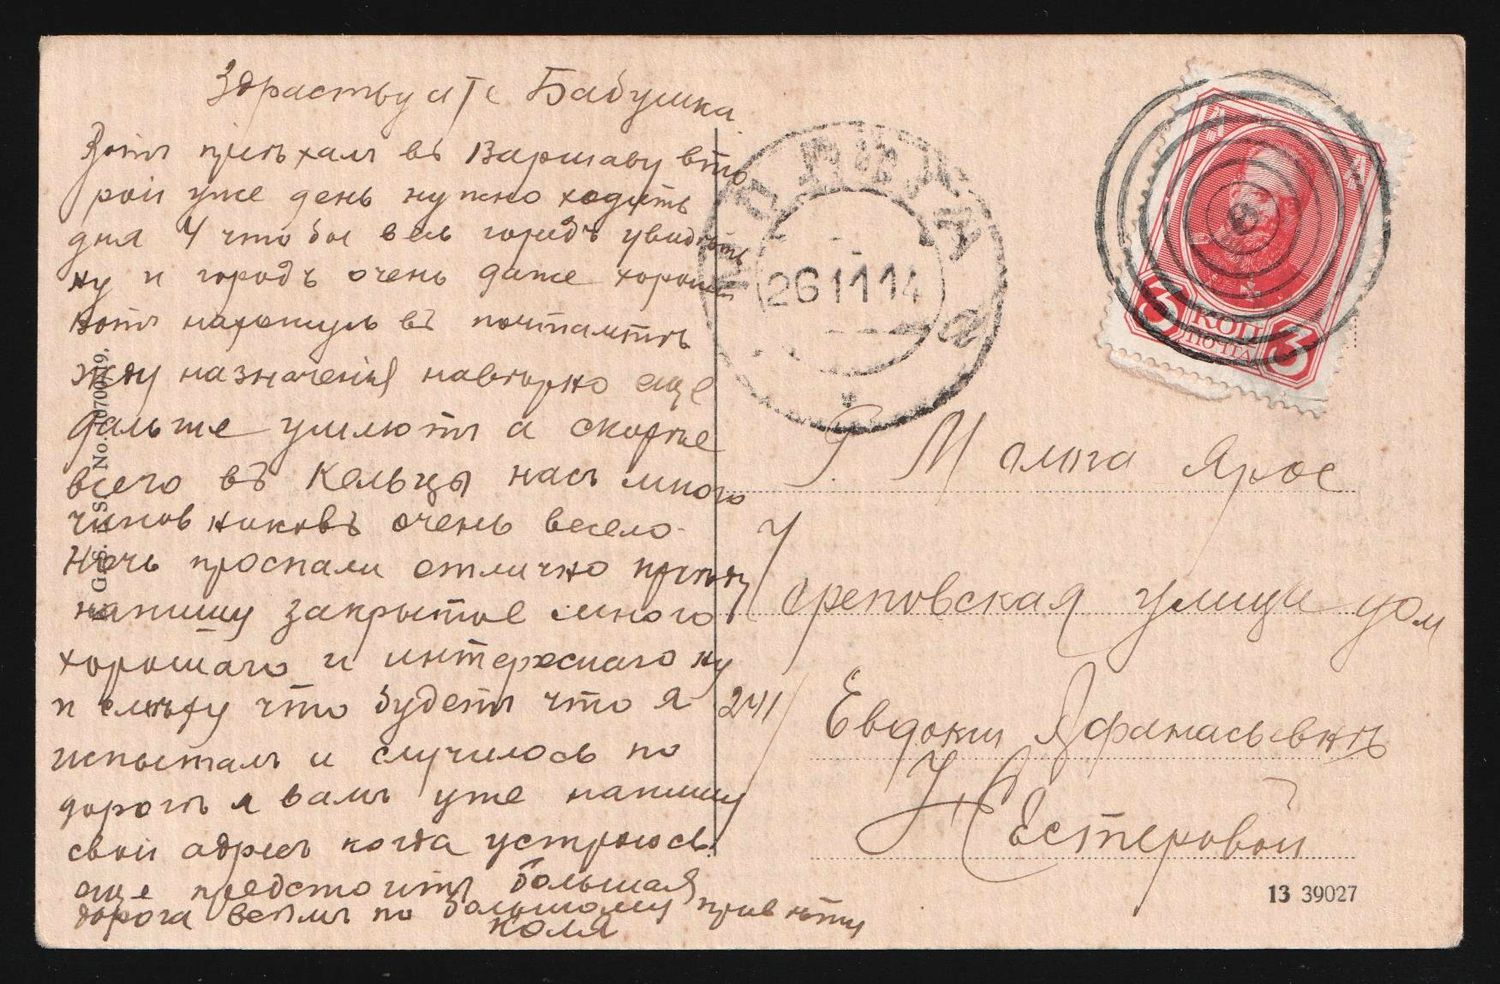 Здраствуите Бабушка
Вотъ приѣхалъ въ Варшаву вто
рои уже день нужно ходить
дня 4 что бы весь городъ увидѣть
ну и городъ очень даже хорошъ
вотъ нахожусь въ почтамтѣ
жду назначенія навѣрно еще
дальше ушлютъ а скорѣе
всего въ Кельцы насъ много
чиновниковъ очень весело
Ночь проспали отлично
напишу закрытое много
хорошаго и интереснаго ну
и что будетъ что я
испыталъ и случилось по
дорогѣ я вамъ уже напишу
свои адресъ когда устроюсь
еще предстоитъ большая
дорога всѣмъ по большому привѣту
Коля
26 11 14
а
3 КОП 3
ПОЧТА
Г. Молога Ярос
Череповская улица дом
241
Евдокии Афанасьевнѣ
Нестеровой
13 39027